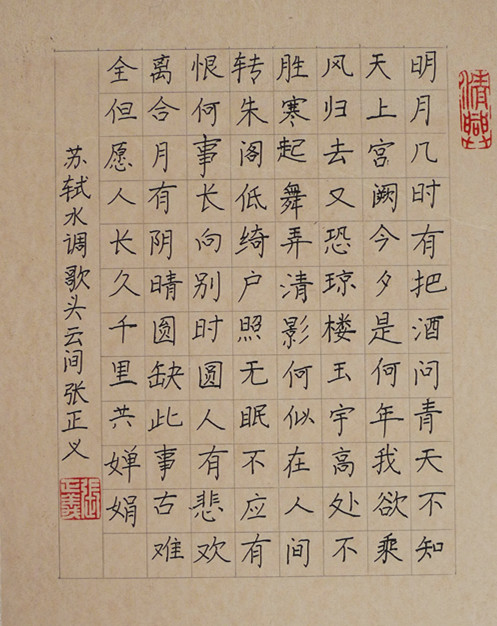 清興
明月几时有把酒问青天不知
天上宫阙今夕是何年我欲乘
风归去又恐琼楼玉宇高处不
胜寒起舞弄清影何似在人间
转朱阁低绮户照无眠不应有
恨何事长向别时圆人有悲欢
离合月有阴晴圆缺此事古难
全但愿人长久千里共婵娟
苏轼水调歌头云间张正义
張正義